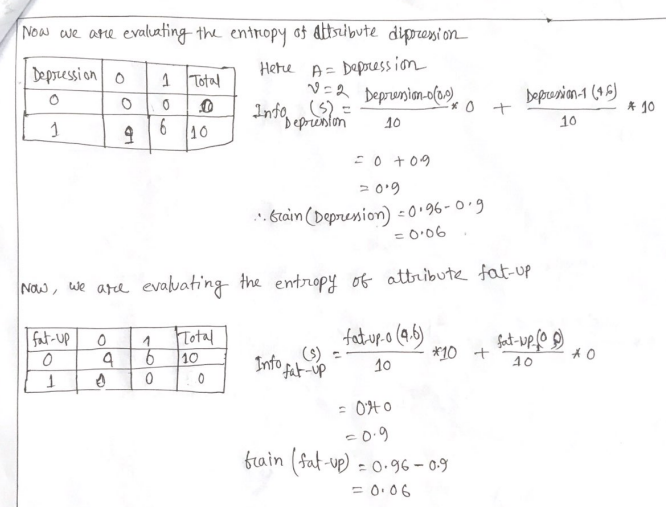 Now we are evaluating the entropy of Attribute dipression
Depression 0 1 Total
0 0 0 0
1 9 6 10
Here A = Depression
v = 2
Info Depression (S) = Depression-0(0,0)/10 * 0 + Depression-1 (4,6)/10 * 10
= 0 + 09
= 0.9
∴ Grain (Depression) = 0.96 - 0.9
= 0.06
Now, we are evaluating the entropy of attribute fat-up
fat-up 0 1 Total
0 4 6 10
1 0 0 0
Info fat-up (S) = fat-up-0 (4.6)/10 *10 + fat-up (0 0)/10 * 0
= 0.9+0
= 0.9
Grain (fat-up) = 0.96 - 0.9
= 0.06